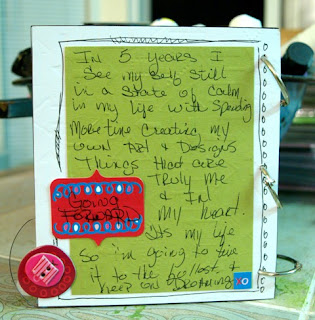 In 5 years I
See my self still
in a state of calm
in my life with spending
more time creating my
own Art & Designs
Things that are
Truly me
& IN
my heart.
Its my life
So i'm going to live
it to the fullest &
keep on Dreaming
GOING
FORWARD
XO